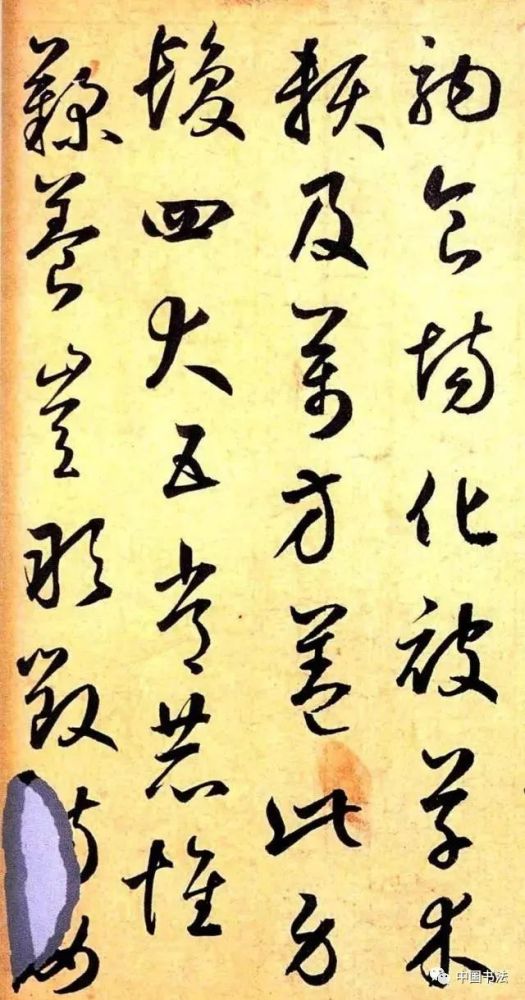 駒食場化被草木
賴及萬方蓋此身
髮四大五常恭惟
鞠養豈敢毀女
中国书法